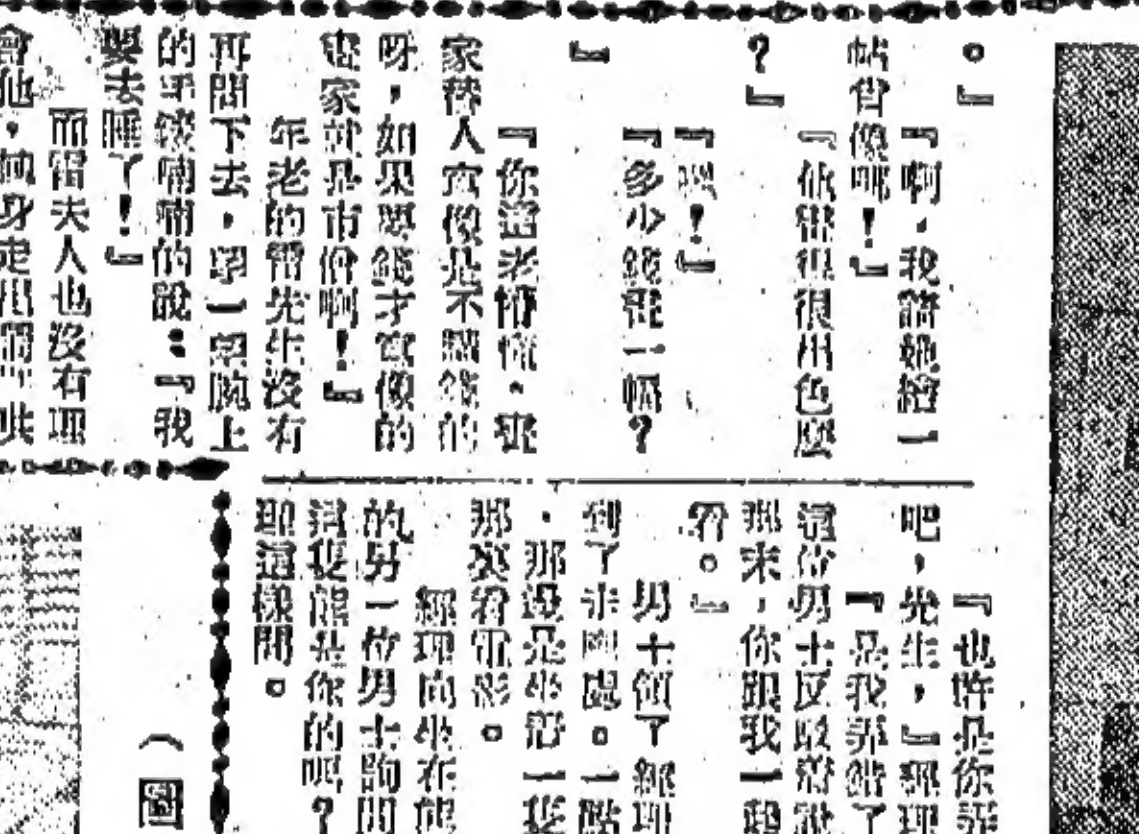 。』
『啊，我請她繪一
帖肖像哪！』
『他畫得很出色麼
？』
『噢！』
『多少錢畫一幅？
』
『你這老懵懂，畫
家替人畫像是不講錢的
呀，如果要錢才畫像的
畫家就是市儈啊！』
年老的雷先生沒有
再問下去，望一望腕上
的手錶喃喃的說：『我
要去睡了！』
而雷夫人也沒有理
會他，身走出
『也許是你弄
吧，先生，』經理
『是我弄錯了
這位男士反駁着說
那末，你跟我一起
看。』
男士領了經理
到了処。一點
，那邊是坐着一隻
那裏看電影。
經理向坐在熊
的另一位男士詢問
這隻熊是你的嗎？
理這樣問。
（圖